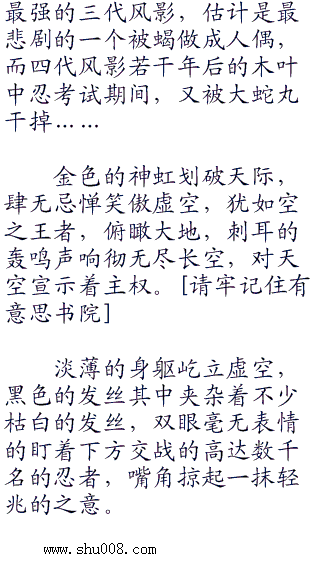 最强的三代风影，估计是最
悲剧的一个被蝎做成人偶，
而四代风影若干年后的木叶
中忍考试期间，又被大蛇丸
干掉……
金色的神虹划破天际，
肆无忌惮笑傲虚空，犹如空
之王者，俯瞰大地，刺耳的
轰鸣声响彻无尽长空，对天
空宣示着主权。[请牢记住有
意思书院]
淡薄的身躯屹立虚空，
黑色的发丝其中夹杂着不少
枯白的发丝，双眼毫无表情
的盯着下方交战的高达数千
名的忍者，嘴角掠起一抹轻
兆的之意。
www.shu008.com